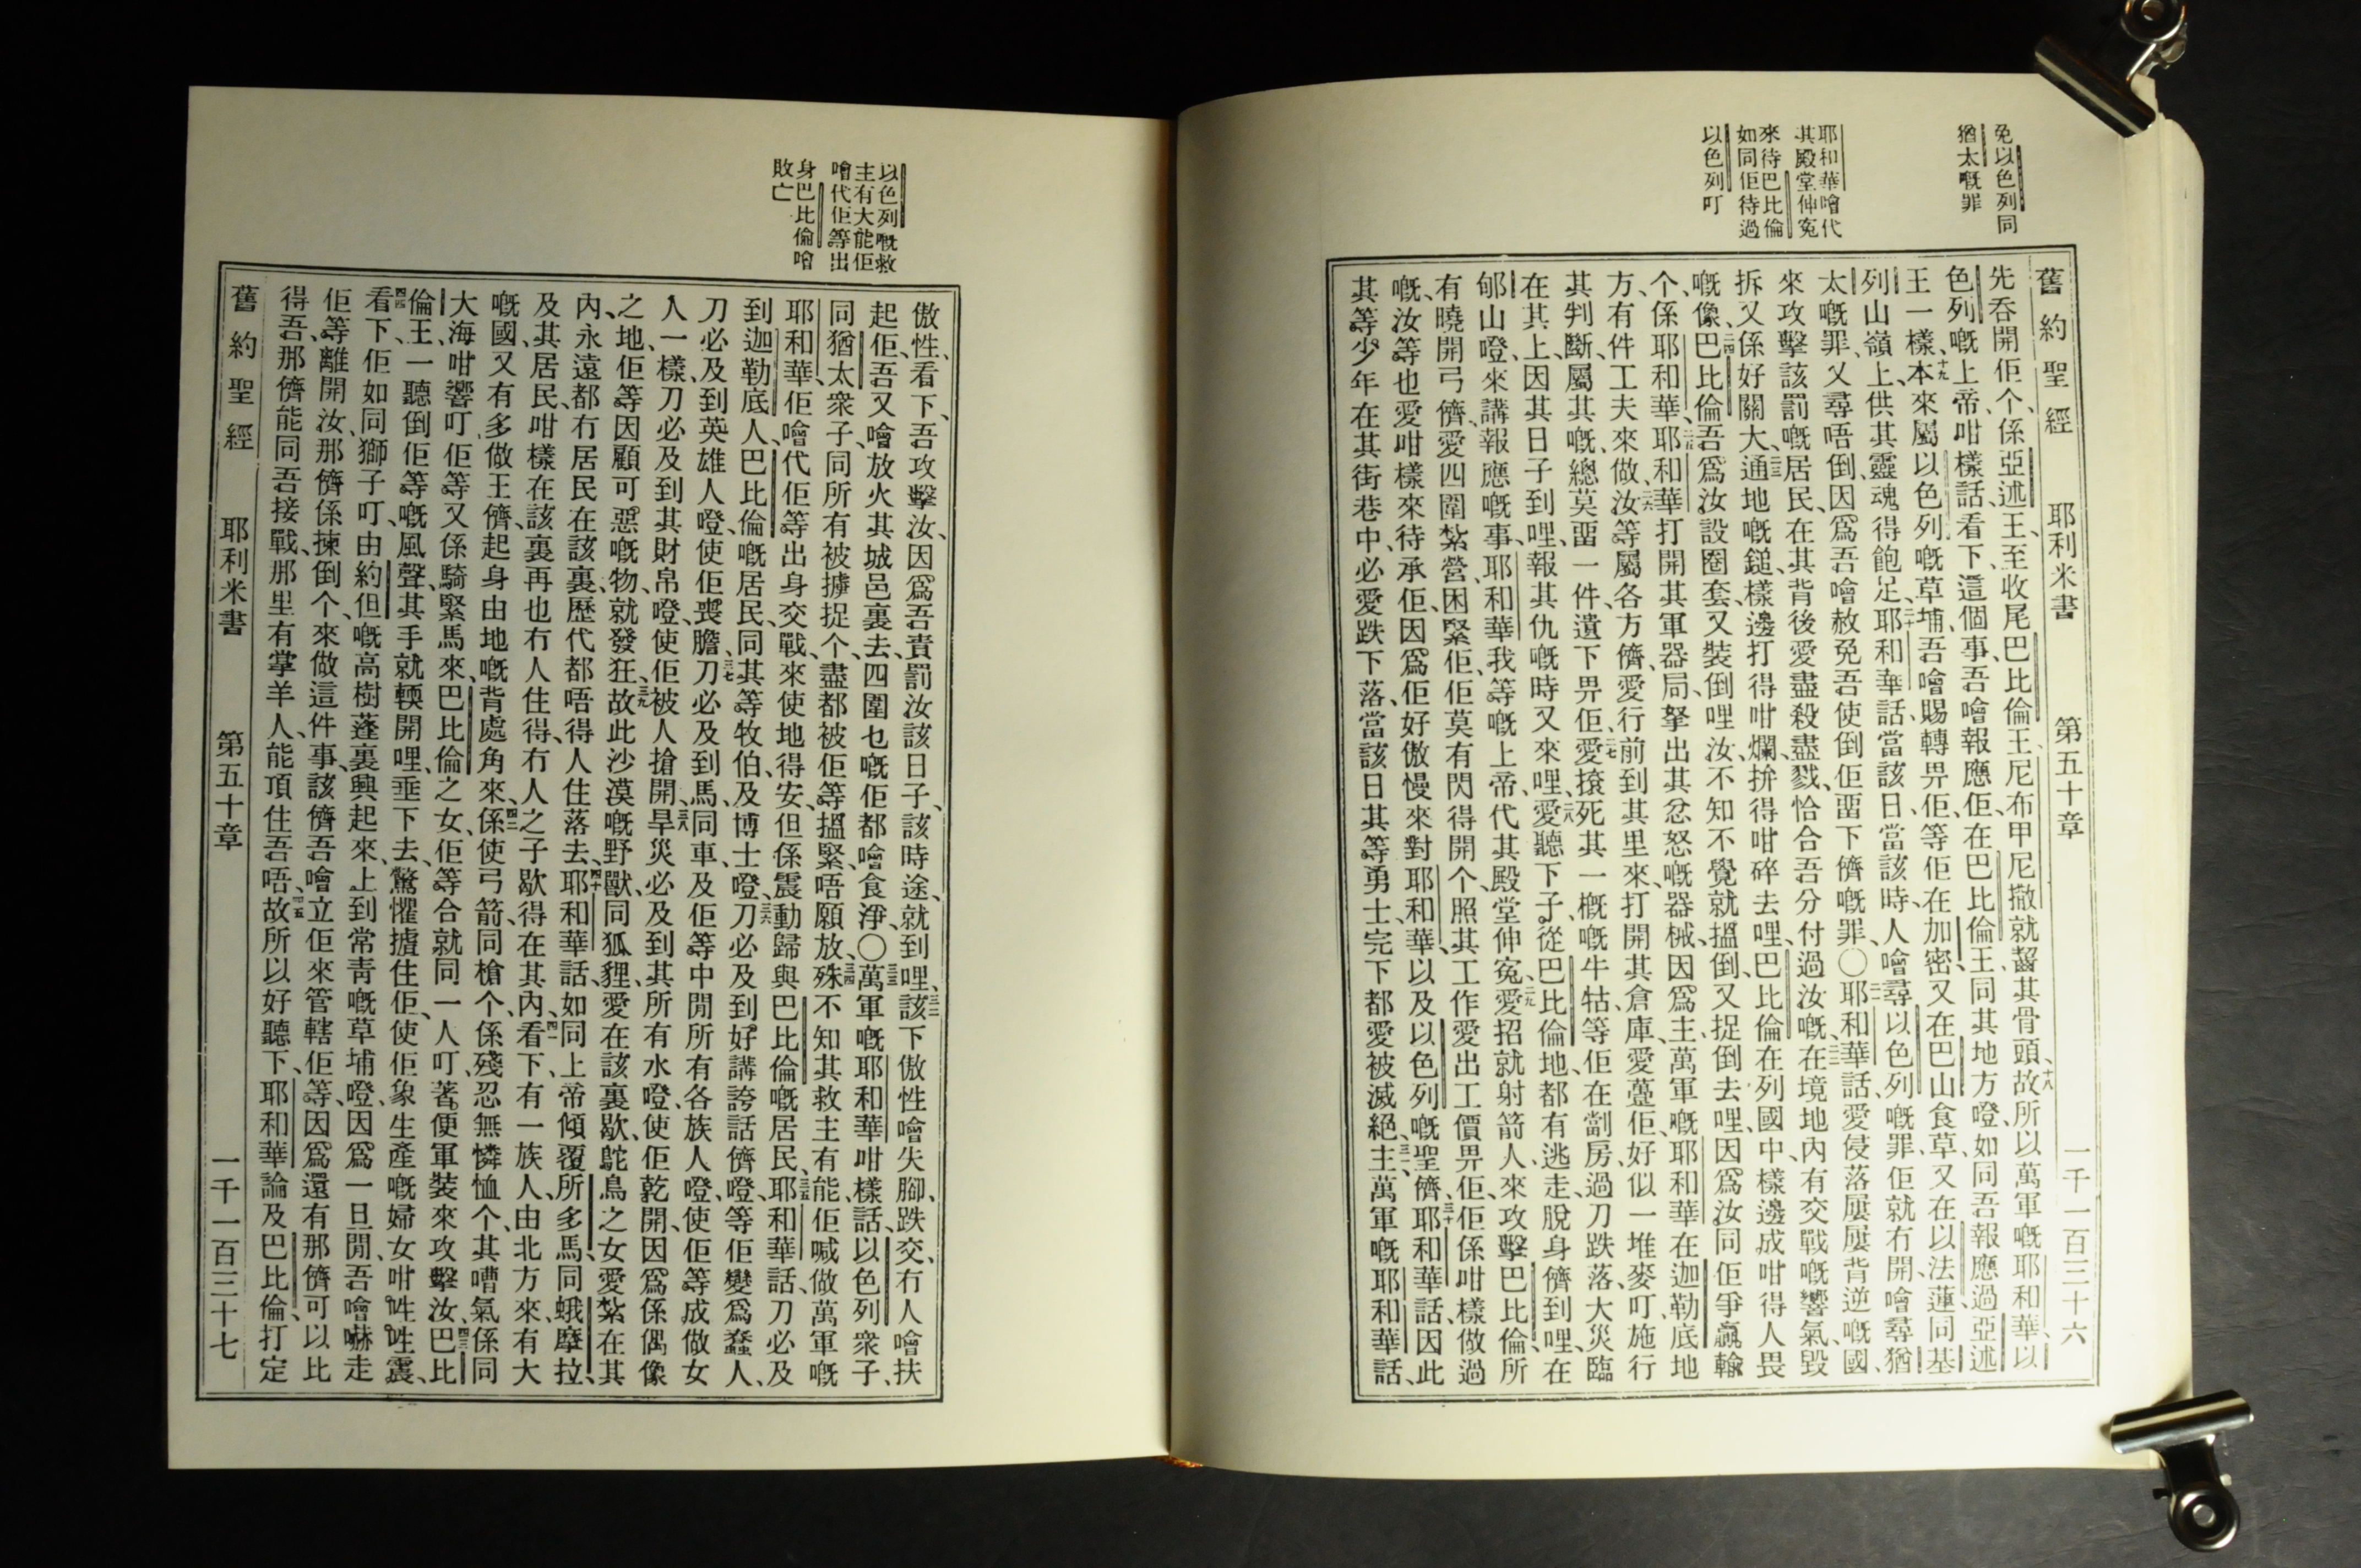 免以色列同
猶太嘅罪
耶和華噲代
其殿堂伸寃
來待巴比倫
如同佢待過
以色列叮
舊約聖經 耶利米書 第五十章 一千一百三十六
先吞開佢个、係亞述王、至收尾巴比倫王尼布甲尼撒就齧其骨頭、十八故所以萬軍嘅耶和華、以
色列嘅上帝、咁樣話、看下、這個事、吾噲報應佢、在巴比倫王、同其地方噔、如同吾報應過亞述
王一樣、十九本來屬以色列嘅草埔、吾噲賜轉畀佢等、佢在加密、又在巴山食草、又在以法蓮同基
列山嶺上、供其靈魂得飽足、二十耶和華話、當該日、當該時、人噲尋以色列嘅罪、佢就冇開、噲尋猶
太嘅罪、又尋唔倒、因爲吾噲赦免吾使倒佢畱下儕嘅罪、〇二一耶和華話、愛侵落屢屢背逆嘅國、
來攻擊該罰嘅居民、在其背後愛盡殺盡戮、恰合吾分付過汝嘅、二二在境地內有交戰嘅響氣、毀
拆又係好關大、二三通地嘅鎚、樣邊打得咁爛、拚得咁碎去哩、巴比倫在列國中、樣邊成咁得人畏
嘅像、二四巴比倫、吾爲汝設圈套、又裝倒哩、汝不知不覺就搵倒、又捉倒去哩、因爲汝同佢爭贏輸
个、係耶和華、二五耶和華打開其軍器局、拏出其忿怒嘅器械、因爲主、萬軍嘅耶和華、在迦勒底地
方、有件工夫來做、二六汝等屬各方儕、愛行前到其里來、打開其倉庫、愛躉佢、好似一堆麥叮、施行
其判斷、屬其嘅、總莫畱一件遺下畀佢、二七愛㨰死其一概嘅牛牯、等佢在劏房過刀跌落、大災臨
在其上、因其日子到哩、報其仇嘅時又來哩、二八愛聽下子、從巴比倫地都有逃走脫身儕到哩、在
郇山噔、來講報應嘅事、耶和華我等嘅上帝、代其殿堂伸寃、二九愛招就射箭人、來攻擊巴比倫、所
有曉開弓儕、愛四圍紮營、困緊佢、佢莫有閃得開个、照其工作、愛出工價畀佢、佢係咁樣做過
嘅、汝等也愛咁樣來待承佢、因爲佢好傲慢來對耶和華、以及以色列嘅聖儕、三十耶和華話、因此
其等少年在其街巷中、必愛跌下落、當該日其等勇士、完下都愛被滅絕、三一主、萬軍嘅耶和華話、
以色列嘅救
主有大能佢
噲代佢等出
身巴比倫噲
敗亡
傲性、看下、吾攻擊汝、因爲吾責罰汝該日子、該時途、就到哩、三二該下傲性噲失腳、跌交、冇人噲扶
起佢、吾又噲放火其城邑裏去、四圍乜嘅佢都噲食淨、〇三三萬軍嘅耶和華咁樣話、以色列衆子、
同猶太衆子、同所有被擄捉个、盡都被佢等搵緊、唔願放、三四殊不知其救主有能、佢喊做萬軍嘅
耶和華、佢噲代佢等出身交戰、來使地得安、但係震動歸與巴比倫嘅居民、三五耶和華話、刀必及
到迦勒底人、巴比倫嘅居民、同其等牧伯、及博士噔、三六刀必及到好講誇話儕噔、等佢變爲蠢人、
刀必及到英雄人噔、使佢喪膽、三七刀必及到馬、同車、及佢等中閒所有各族人噔、使佢等成做女
人一樣、刀必及到其財帛噔、使佢被人搶開、三八旱災必及到其所有水噔、使佢乾開、因爲係偶像
之地、佢等因顧可惡嘅物、就發狂、三九故此沙漠嘅野獸、同狐狸、愛在該裏歇、鴕鳥之女愛紮在其
內、永遠都冇居民在該裏、歷代都唔得人住落去、四十耶和華話、如同上帝傾覆所多馬、同蛾摩拉、
及其居民、咁樣在該裏再也冇人住得、冇人之子歇得在其內、四一看下、有一族人、由北方來、有大
嘅國、又有多做王儕、起身由地嘅背處角來、四二係使弓箭、同槍个、係殘忍無憐恤个、其嘈氣係同
大海咁響叮、佢等又係騎緊馬來、巴比倫之女、佢等合就同一人叮、著便軍裝來攻擊汝、四三巴比
倫王、一聽倒佢等嘅風聲、其手就輭開哩、垂下去、驚懼摣住佢、使佢象生產嘅婦女咁吽吽震、
四四看下、佢如同獅子叮、由約但嘅高樹蓬裏興起來、上到常靑嘅草埔噔、因爲一旦閒、吾噲嚇走
佢等、離開汝、那儕係揀倒个、來做這件事、該儕吾噲立佢來管轄佢等、因爲還有那儕可以比
得吾、那儕能同吾接戰、那里有掌羊人、能頂住吾唔、四五故所以好聽下、耶和華論及巴比倫、打定
舊約聖經 耶利米書 第五十章 一千一百三十七